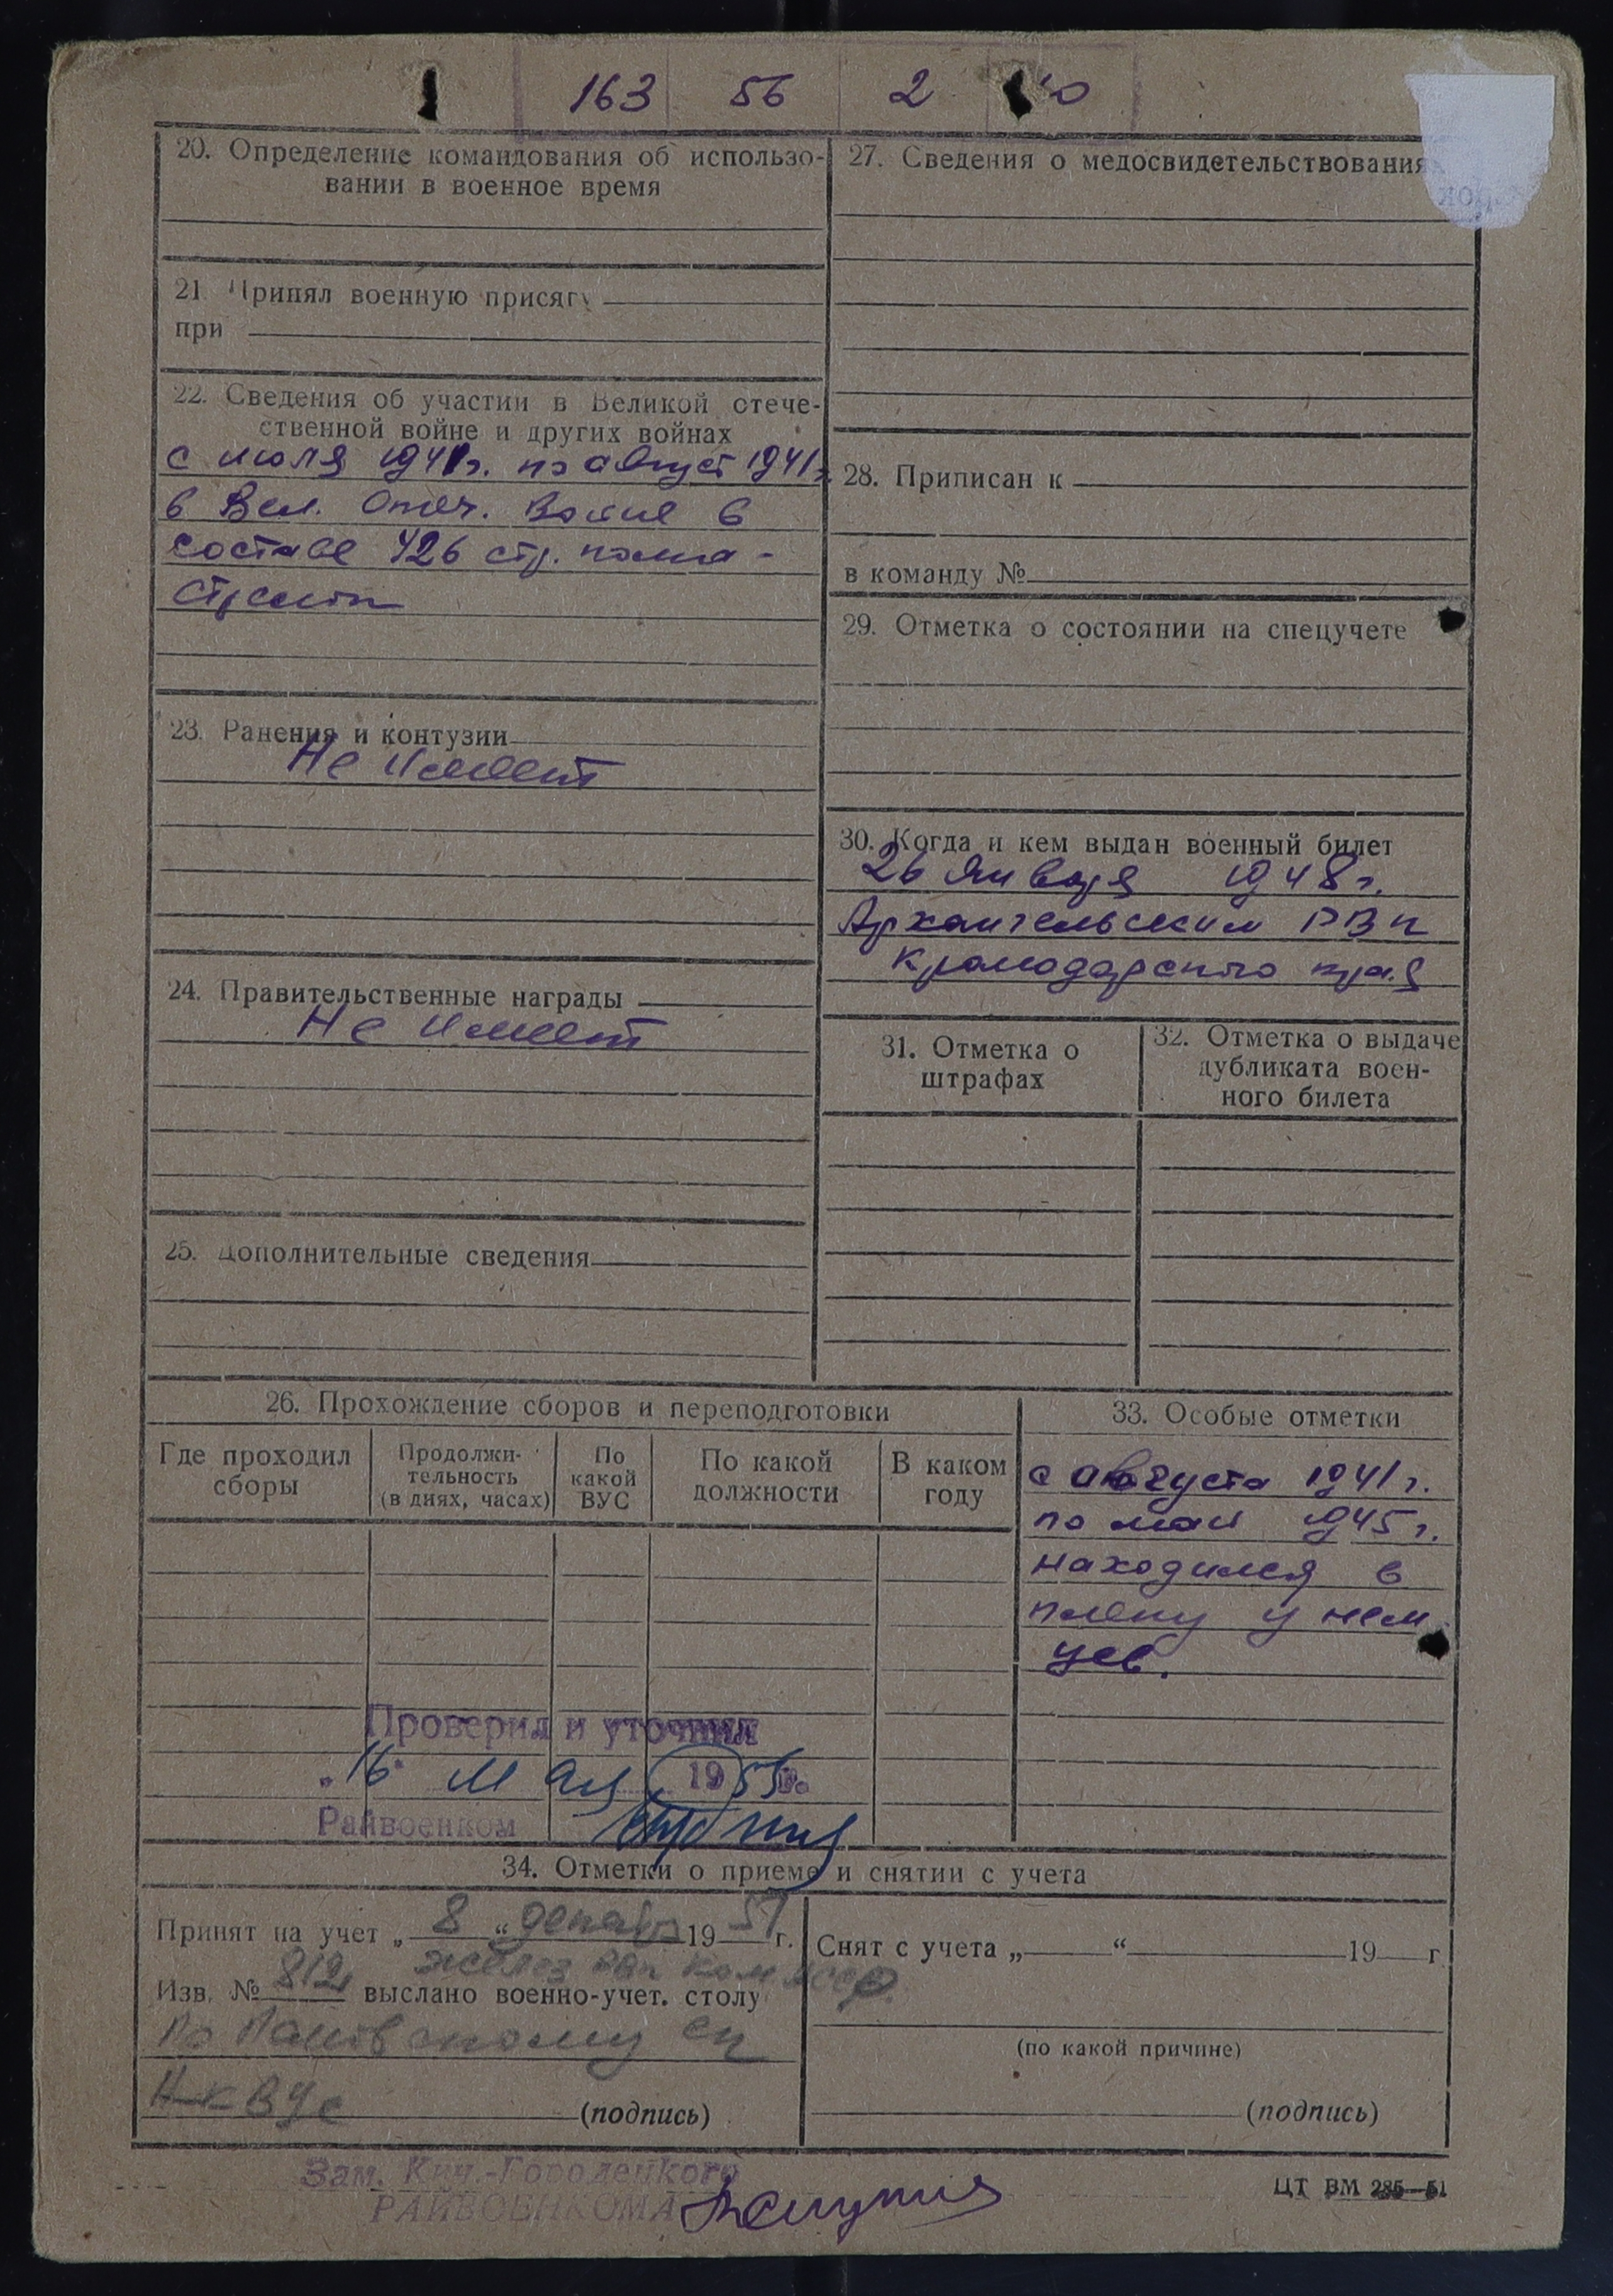 163 56 2
20. Определение командования об использо-
вании в военное время
21. Принял военную присягу
при
22. Сведения об участии в Великой отече-
ственной войне и других войнах
с июля 1941г. по август 1941г.
в Вел. Отеч. Войне в
составе 426 стр. полка -
стрелок
23. Ранения и контузии
Не имеет
24. Правительственные награды
Не имеет
25. Дополнительные сведения
27. Сведения о медосвидетельствованиях
28. Приписан к
в команду №
29. Отметка о состоянии на спецучете
30. Когда и кем выдан военный билет
26 января 1948г.
Архангельским РВК
Краснодарского края
31. Отметка о
штрафах
32. Отметка о выдаче
дубликата воен-
ного билета
26. Прохождение сборов и переподготовки
Где проходил
сборы
Продолжи-
тельность
(в днях, часах)
По
какой
ВУС
По какой
должности
В каком
году
33. Особые отметки
с августа 1941г.
по май 1945г.
находился в
плену у нем
цев.
Проверил и уточнил
„16" Мая 19 г.
Райвоенком
34. Отметки о приеме и снятии с учета
Принят на учет „ 8 “ декабр 1951 г.
Изв. № 812 выслано военно-учет. столу
По
(подпись)
Снят с учета „ “ 19 г
(по какой причине)
(подпись)
Зам. Кич.-Городецкого
РАЙВОЕНКОМА
ЦТ ВМ 285—51